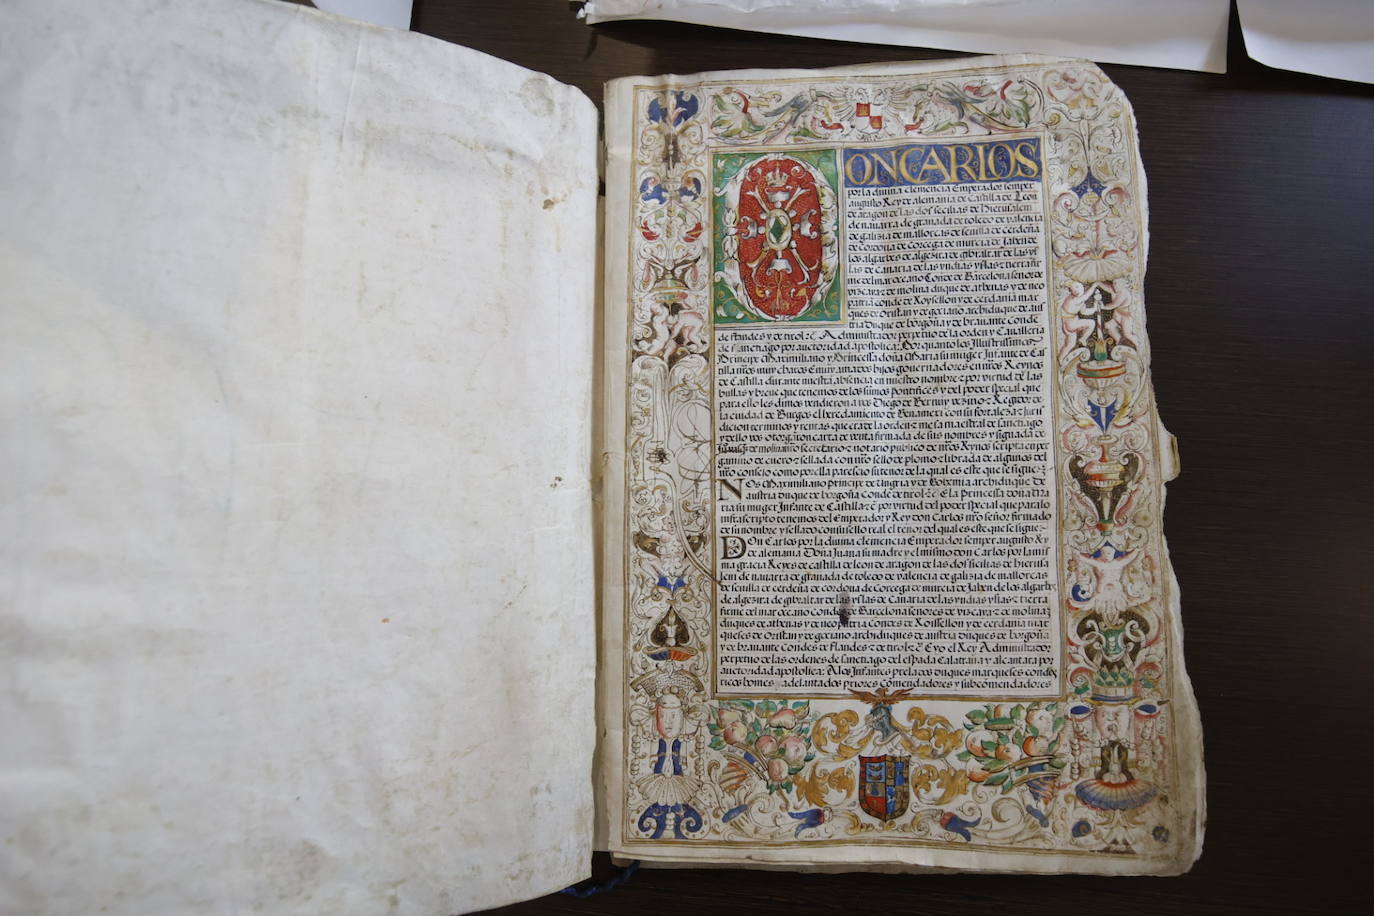 DON CARLOS
por la divina clemencia Emperador semper
augusto Rey de alemania de Castilla de Leon
de aragon de las dos secilias de hierusalem
de navarra de granada de toledo de valencia
de galizia de mallorcas de sevilla de cerdeña
de cordova de corcega de murcia de Jahen de
los algarbes de algezira de gibraltar de las ys
las de Canaria de las yndias yslas z tierra fir
me del mar oceano Conde de Barcelona señor de
vizcaya z de molina duque de athenas y de neo
patria conde de Roysellon y de cerdania mar
ques de Oristan y de gociano archiduque de aus
tria Duque de borgoña y de bravante Conde
de flandes y de tirol zc̃. Administrador perpetuo de la orden y Cavalleria
de sanctiago por auctoridad apostolica: Por quanto los Illustrissimos
Principe Maximiliano y Princessa doña Maria su muger Infante de Cas
tilla nr̃os muy charos z muy amados hijos governadores en nr̃os Reynos
de Castilla durante nuestra absencia en nuestro nombre z por virtud de las
bullas y breve que tenemos de los sumos pontifices y del poder special que
para ello les dimos vendieron a vos Diego de Bernuy vezino z Regidor de
la ciudad de Burgos el heredamiento de Benamexi con su fortaleza z juris
dicion terminos y rentas que era de la orden z mesa maestral de sanctiago
y dello vos otorgaron carta de venta firmada de sus nombres y signada de
de molina nr̃o secretario z notario publico de nr̃os Reynos scripta en per
gamino de cuero z sellada con nr̃o sello de plomo z librada de algunos del
nr̃o consejo como por ella parescio su tenor de la qual es este que se sigue:
NOs Maximiliano principe de Ungria y de Bohemia archiduque de
austria duque de borgoña Conde de tirol zc̃ E la Princessa doña Ma
ria su muger Infante de Castilla zc̃ por virtud del poder special que para lo
infrascripto tenemos del Emperador y Rey don Carlos nr̃o señor firmado
de su nombre y sellado con su sello real el tenor del qual es este que se sigue
DOn Carlos por la divina clemencia Emperador semper augusto Rey
de alemania Doña Juana su madre y el mismo don Carlos por la mis
ma gracia Reyes de castilla de leon de aragon de las dos sicilias de hierusa
lem de navarra de granada de toledo de valencia de galizia de mallorcas
de sevilla de cerdeña de cordova de corcega de murcia de Jahen de los algarbes
de algezira de gibraltar de las yslas de Canaria de las yndias yslas z tierra
firme del mar oceano Condes de Barcelona señores de vizcaya z de molina
duques de athenas y de neopatria Condes de Roissellon y de cerdania mar
queses de Oristan y de gociano archiduques de austria duques de borgoña
y de bravante Condes de flandes z de tirol zc̃ E yo el Rey Administrador
perpetuo de las ordenes de sanctiago del espada Calatrava y alcantara por
auctoridad apostolica: A los Infantes prelados duques marqueses condes
ricos homes adelantados priores Comendadores y subcomendadores